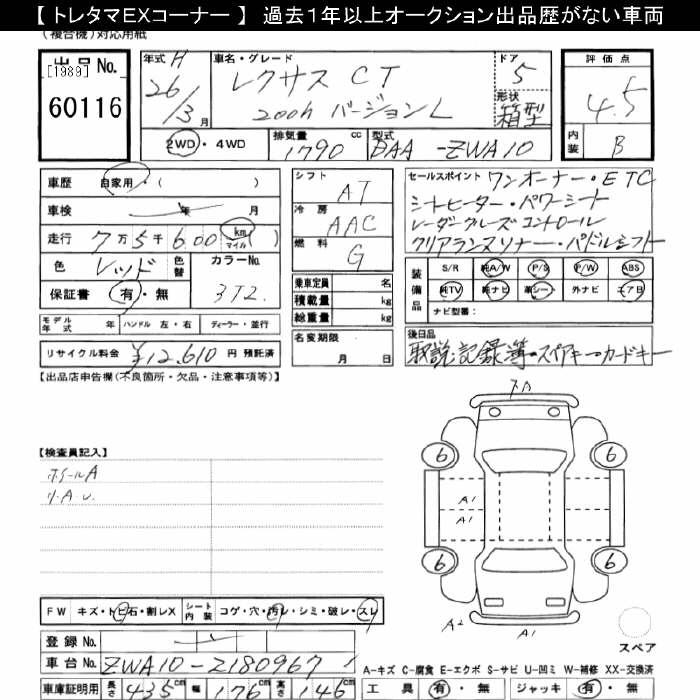 【 トレタマEXコーナー 】 過去1年以上オークション出品歴がない車両
(複合機)対応用紙
出品No.
[1989]
60116
年式 H
26/3月
車名・グレード
レクサス CT
200h バージョンL
ドア
5
形状
箱型
評価点
4.5
内装
B
2WD・4WD
排気量
1790 cc
型式
DAA-ZWA10
車歴 自家用・( )
車検 年 月
走行 7万5千600 km マイル ( )
色 レッド 色替
カラーNo.
3T2.
保証書 有・無
モデル年式 年 ハンドル 左・右 ディーラー・並行
リサイクル料金 ¥12,610 円 預託済
シフト AT
冷房 AAC
燃料 G
乗車定員 名
積載量 kg
総重量 kg
名変期限
月 日
セールスポイント ワンオーナー・ETC
シートヒーター・パワーシート
レーダークルーズコントロール
クリアランスソナー・パドルシフト
装備品
S/R 純A/W P/S P/W ABS
純TV 純ナビ 革シート 外ナビ エアB
ナビ型番:
後日品
取説記録簿・スペアキー・カードキー
【出品店申告欄(不良箇所・欠品・注意事項等)】
【検査員記入】
ホイールA
リ.A.U.
下A
6
6
A1
A1
6
6
A2
A1
スペア
FW キズ・トビ石・割レX シート内装 コゲ・穴・汚レ・シミ・破レ・スレ
登録No.
車台No. ZWA10-Z180967
車庫証明用 長さ 435cm 幅 176cm 高さ 146cm
A-キズ C-腐食 E-エクボ S-サビ U-凹ミ W-補修 XX-交換済
工具 有・無 ジャッキ 有・無